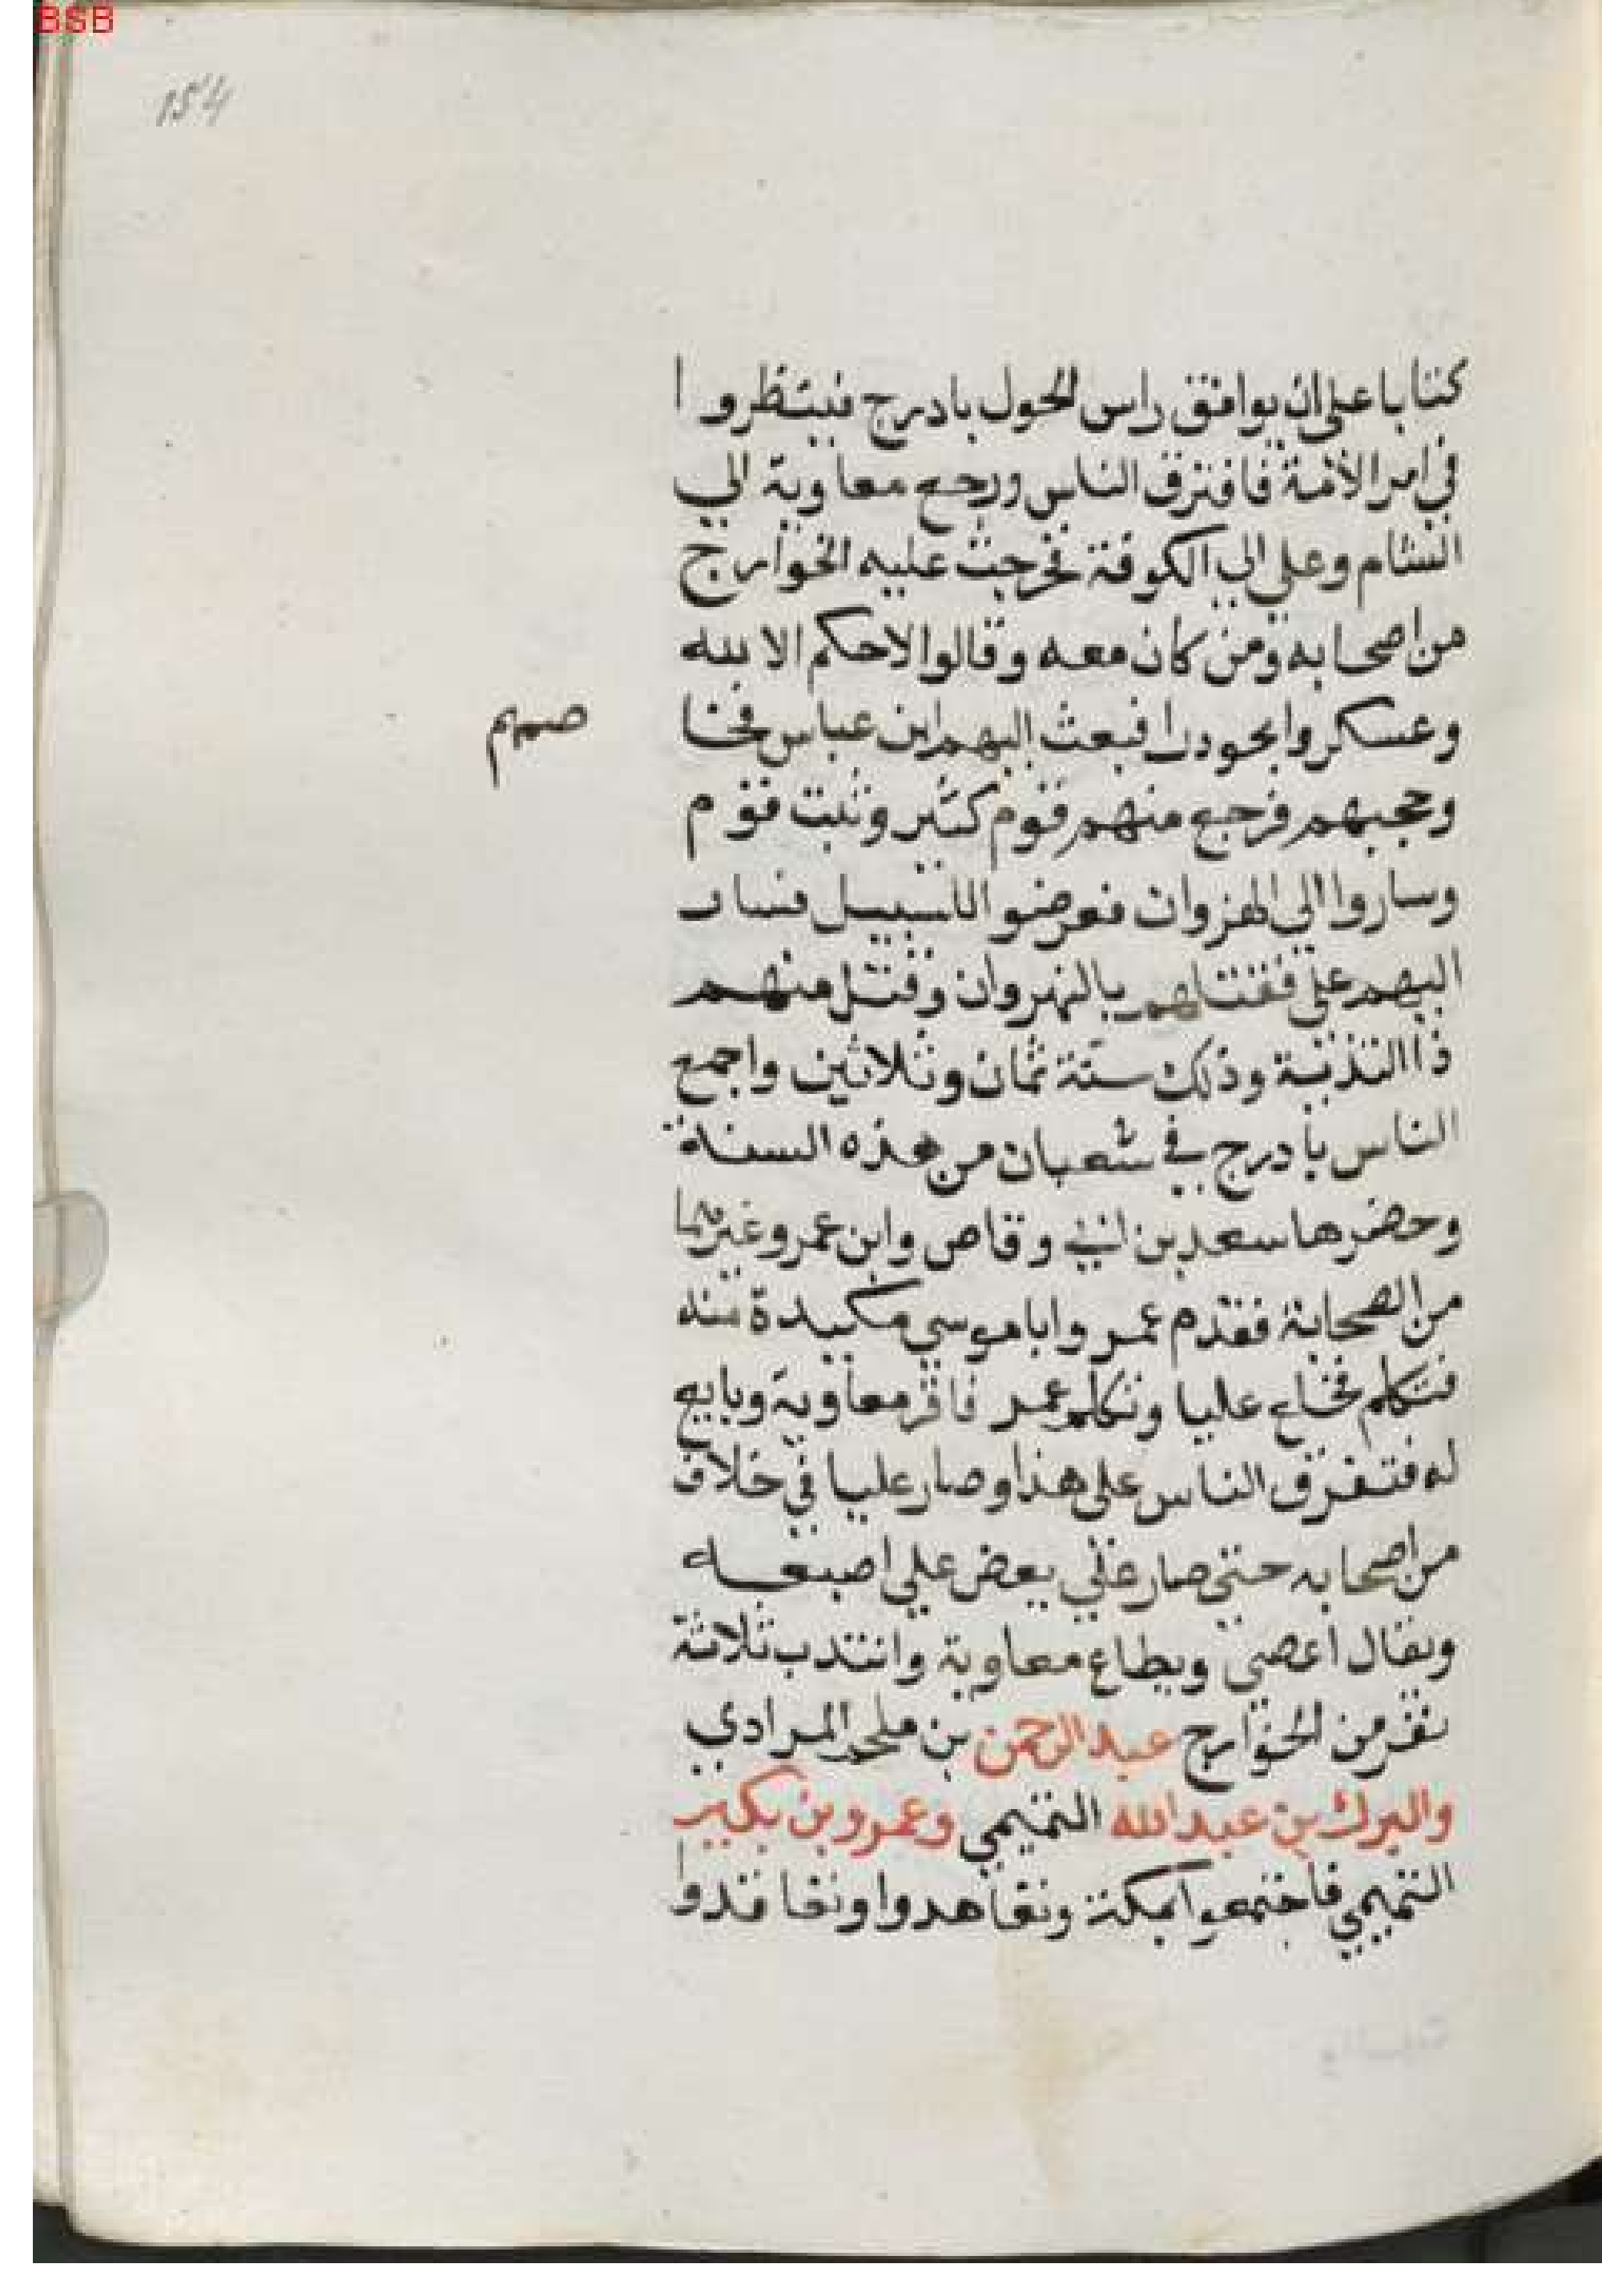 BSB
154
كتابا على ان يوافق راس الحول بادرج فينتظروا
في امر الامة فافترق الناس ورجع معاوية الي
الشام وعلي الي الكوفة فخرجت عليه الخوارج
من اصحابه ومن كان معه وقالوا لا حكم الا لله
وعسكروا بحودرا فبعث اليهم ابن عباس فخا
صمهم
وحجبهم فرجع منهم قوم كثير وثبت قوم
وساروا الي الهزوان فعرضوا للسبيل فسار
اليهم علي فقتلهم بالنهروان وقتل منهم
ذا الثذية وذلك سنة ثمان وثلاثين واجمع
الناس بادرج في شعبان من هذه السنة
وحضرها سعد بن ابي وقاص وابن عمر وغيرهما
من الصحابة فقدم عمرو ابا موسي مكيدة منه
فتكلم فخلع عليا وتكلم عمر فاقر معاوية وبايع
له فتفرق الناس على هذا وصار عليا في خلاف
من اصحابه حتى صار علي يعض علي اصبعه
ويقال اعصى ويطاع معاوية وانتدب ثلاثة
نفر من الخوارج عبد الرحمن بن ملجم المرادي
والبرك بن عبد الله التميمي وعمرو بن بكير
التميمي فاجتمعوا بمكة وتعاهدوا وتعاقدوا